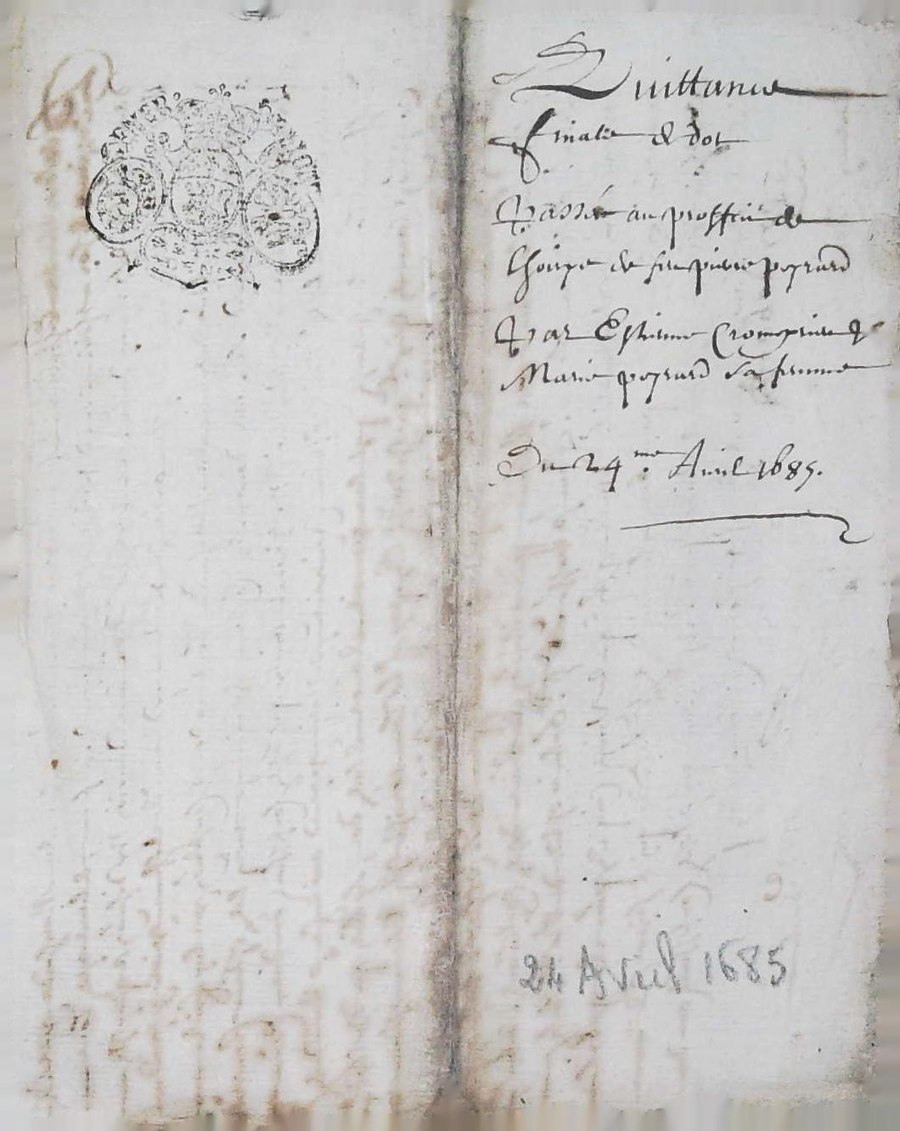 Quittance
finale & dot
Passée au proffit de
lhoirye de feu pierre peyrard
Par Estienne &
Marie peyrard sa femme
Du 24me Avril 1685.
24 Avril 1685